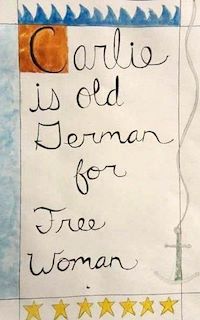 Carlie
is old
German
for
Free
Woman